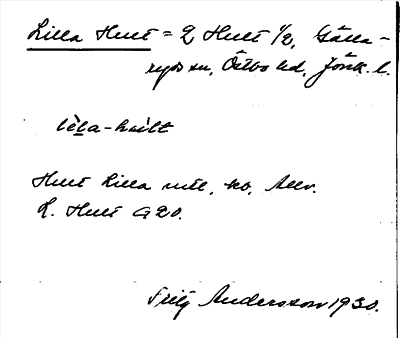 Lilla Hult = 2 Hult 1/2, Gälla-
ryds sn, Östbo hd, Jönk. l.
lìlla-hùlt
Hult Lilla
L. Hult G20.
Andersson 1930.